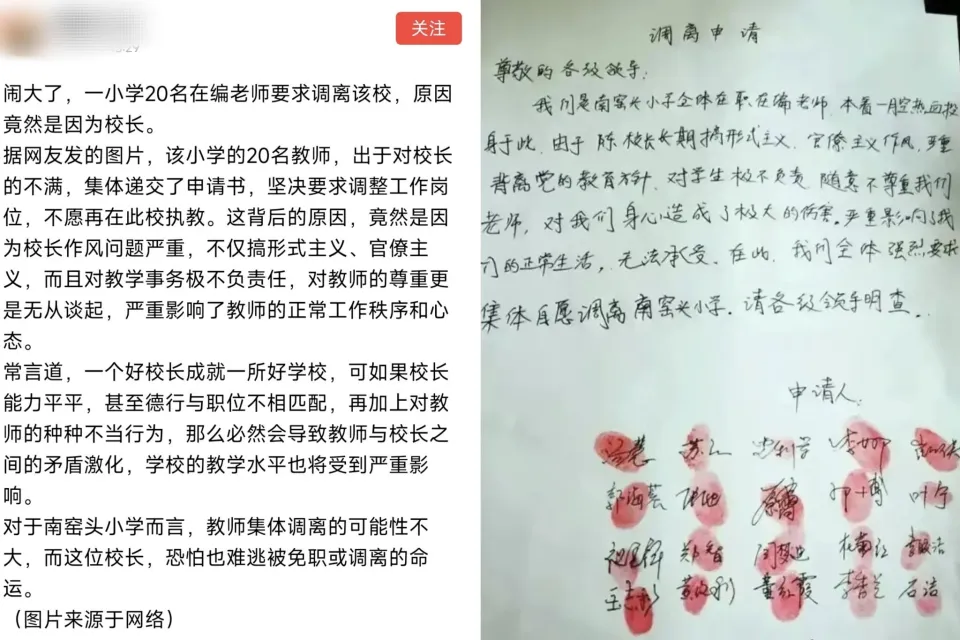 关注
闹大了，一小学20名在编老师要求调离该校，原因
竟然是因为校长。
据网友发的图片，该小学的20名教师，出于对校长
的不满，集体递交了申请书，坚决要求调整工作岗
位，不愿再在此校执教。这背后的原因，竟然是因
为校长作风问题严重，不仅搞形式主义、官僚主
义，而且对教学事务极不负责任，对教师的尊重更
是无从谈起，严重影响了教师的正常工作秩序和心
态。
常言道，一个好校长成就一所好学校，可如果校长
能力平平，甚至德行与职位不相匹配，再加上对教
师的种种不当行为，那么必然会导致教师与校长之
间的矛盾激化，学校的教学水平也将受到严重影
响。
对于南窑头小学而言，教师集体调离的可能性不
大，而这位校长，恐怕也难逃被免职或调离的命
运。
（图片来源于网络）
调离申请
尊敬的各级领导：
我们是南窑头小学全体在职在编老师，本着一腔热血投
身于此，由于陈校长长期搞形式主义、官僚主义作风，严重
背离党的教育方针，对学生极不负责，随意不尊重我们
老师，对我们身心造成了极大的伤害。严重影响了我
们的正常生活，无法承受。在此，我们全体强烈要求
集体自愿调离南窑头小学。请各级领导明查。
申请人：
李娜
郭海芸 叶宁
郑智 杜南红
黄红霞 李香兰 石洁